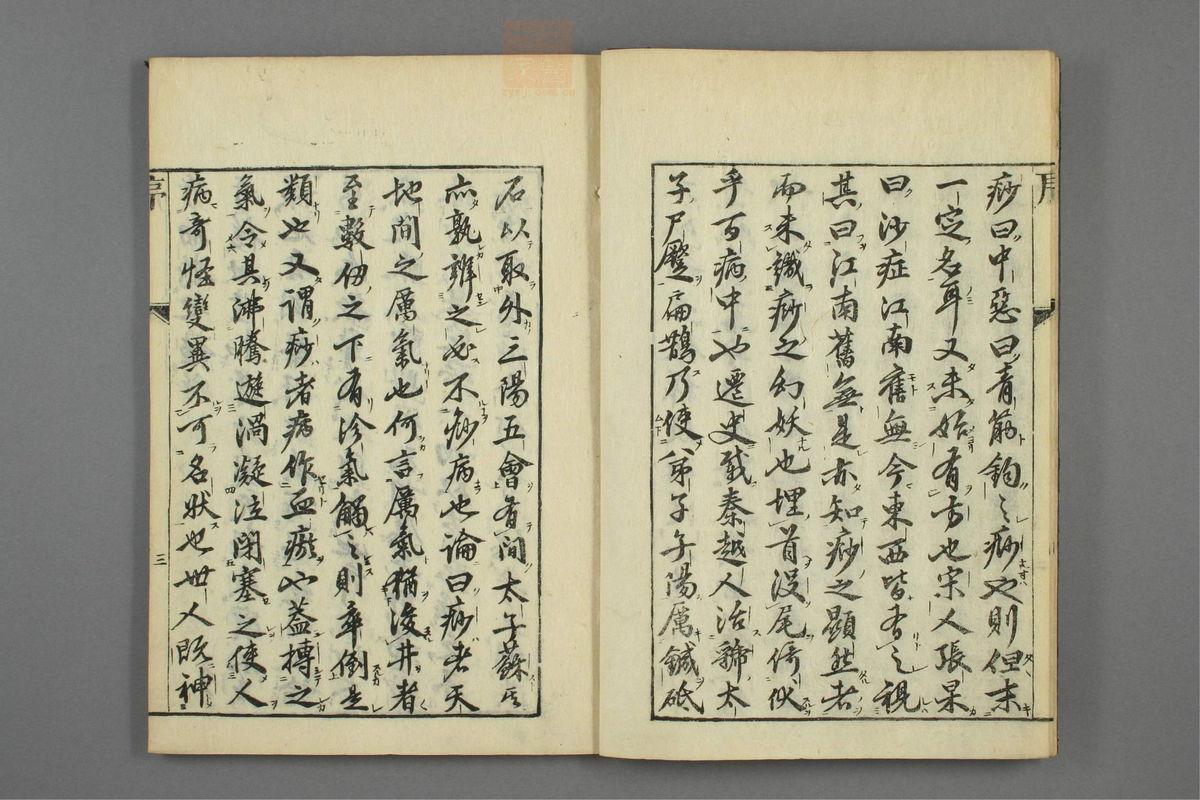 痧曰中惡曰青筋鈞之痧也則但未
一定名耳又未始有方也宋人張杲
曰沙症江南舊無今東西皆有之視
其曰江南舊無是亦知痧之顯然者
而未識痧之幻妖也埋首沒尾倚伏
乎百病中也遷史載秦越人治虢太
子尸蹷扁鵲乃使弟子子陽厲鍼砥
石以取外三陽五會有間太子蘇
亦孰辨之必不痧病也論曰痧者天
地間之厲氣也何言厲氣猶浚井者
至數仞之下有沴氣觸之則卒倒是
類也又謂痧者病作血瘲也蓋搏之
氣令其沸騰遊渦凝注閉塞之使人
病奇怪變異不可名狀也世人既神
序
三
zyrj.com.cn